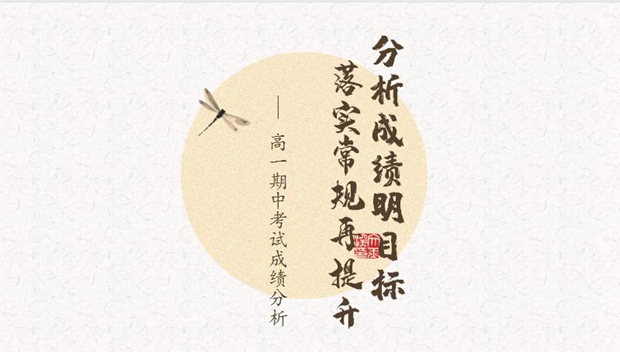 分析成绩明目标
落实常规再提升
— 高一期中考试成绩分析